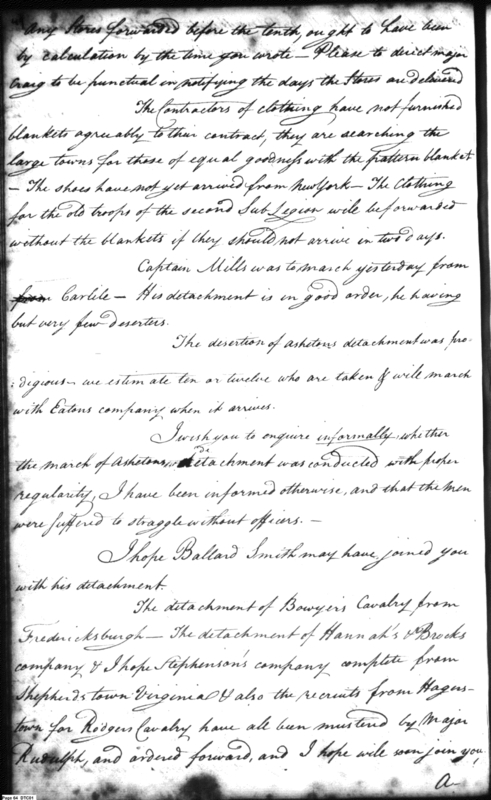 any Stores forwarded before the tenth, ought to have been
by calculation by the time you wrote – Please to direct major
Craig to be punctual in notifying the days the Stores are delivered
The Contractors of clothing have not furnished
blankets agreeably to their contract, they are searching the
large towns for those of equal goodness with the pattern blanket
– The shoes have not yet arrived from New York – The Clothing
for the old troops of the second Sub Legion will be forwarded
without the blankets if they should not arrive in two days.
Captain Mills was to march yesterday from
from Carlile – His detachment is in good order, he having
but very few deserters.
The desertion of ashetons detachment was pro-
:digious – we estimate ten or twelve who are taken & will march
with Eatons company when it arrives.
I wish you to enquire informally, whether
the march of Ashetons, detachment was conducted with proper
regularity, I have been informed otherwise, and that the men
were suffered to straggle without officers. –
I hope Ballard Smith may have joined you
with his detachment.
The detachment of Bowyers Cavalry from
Fredericksburgh – The detachment of Hannah's & Brocks
company & I hope Stephenson's company complete from
Shepherdstown Virginia & also the recruits from Hagers-
town for Rodgers Cavalry have all been mustered by Major
Rudulph, and ordered forward, and I hope will soon join you,
a
Page 64 DTC01